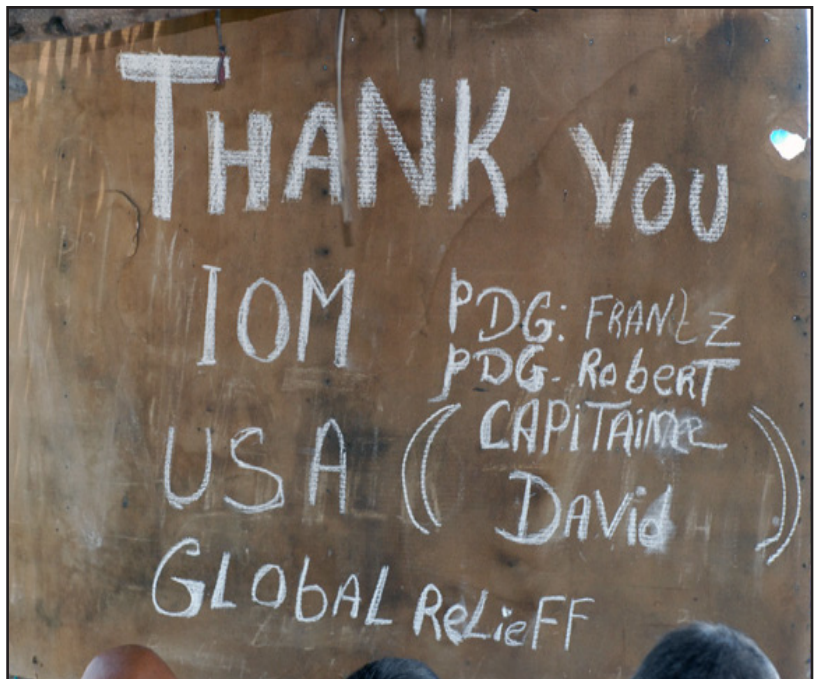 THANK YOU
IOM
PDG: FRANTZ
PDG- RobeRT
USA
(CAPiTAiNe
DAVid)
GLObAL ReLieFF